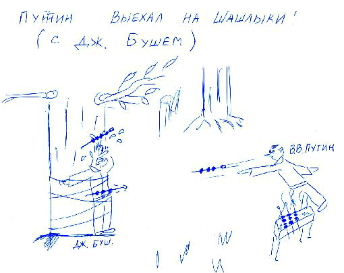 ПУТИН ВЫЕХАЛ НА ШАШЛЫКИ"
(С ДЖ. БУШЕМ)
ВВ ПУТИН
ДЖ. БУШ.